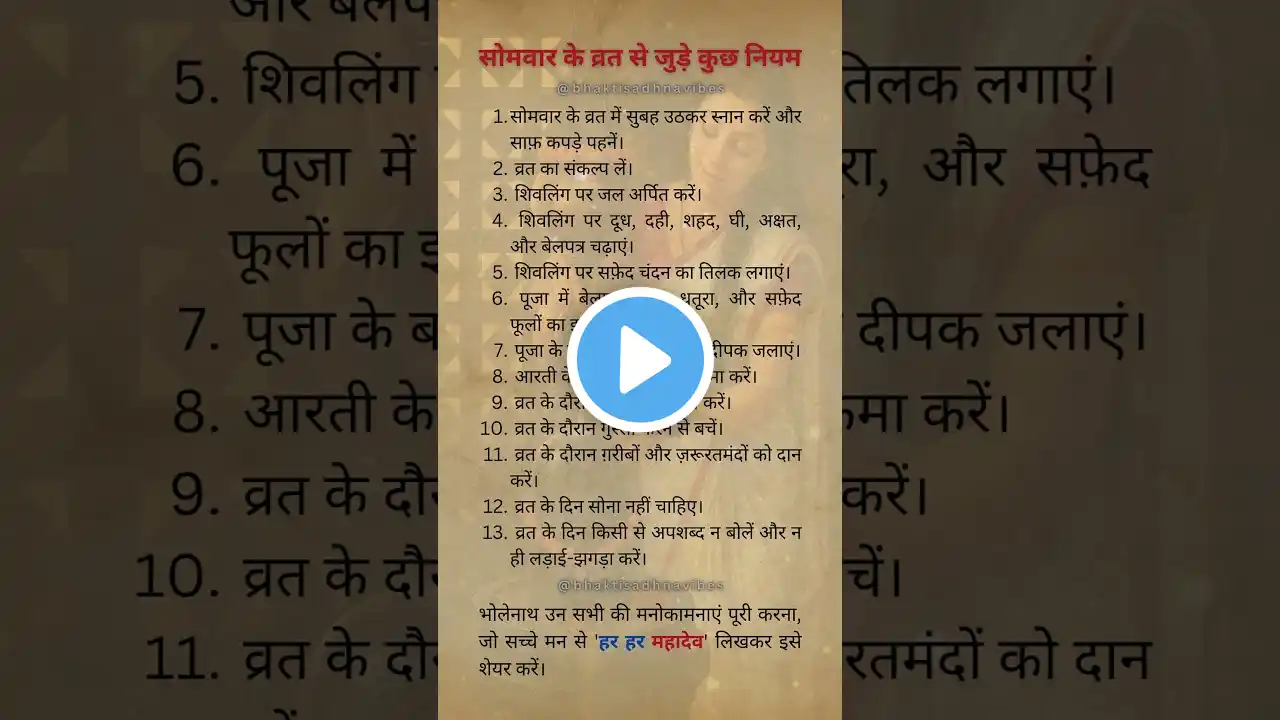 सोमवार के व्रत से जुड़े कुछ नियम
@bhaktisadhnavibes
1. सोमवार के व्रत में सुबह उठकर स्नान करें और
साफ़ कपड़े पहनें।
2. व्रत का संकल्प लें।
3. शिवलिंग पर जल अर्पित करें।
4. शिवलिंग पर दूध, दही, शहद, घी, अक्षत,
और बेलपत्र चढ़ाएं।
5. शिवलिंग पर सफ़ेद चंदन का तिलक लगाएं।
6. पूजा में धतूरा, और सफ़ेद
फूलों का
7. पूजा के दीपक जलाएं।
8. आरती के करें।
9. व्रत के दौरान करें।
10. व्रत के दौरान से बचें।
11. व्रत के दौरान ग़रीबों और ज़रूरतमंदों को दान
करें।
12. व्रत के दिन सोना नहीं चाहिए।
13. व्रत के दिन किसी से अपशब्द न बोलें और न
ही लड़ाई-झगड़ा करें।
@bhaktisadhnavibes
भोलेनाथ उन सभी की मनोकामनाएं पूरी करना,
जो सच्चे मन से 'हर हर महादेव' लिखकर इसे
शेयर करें।